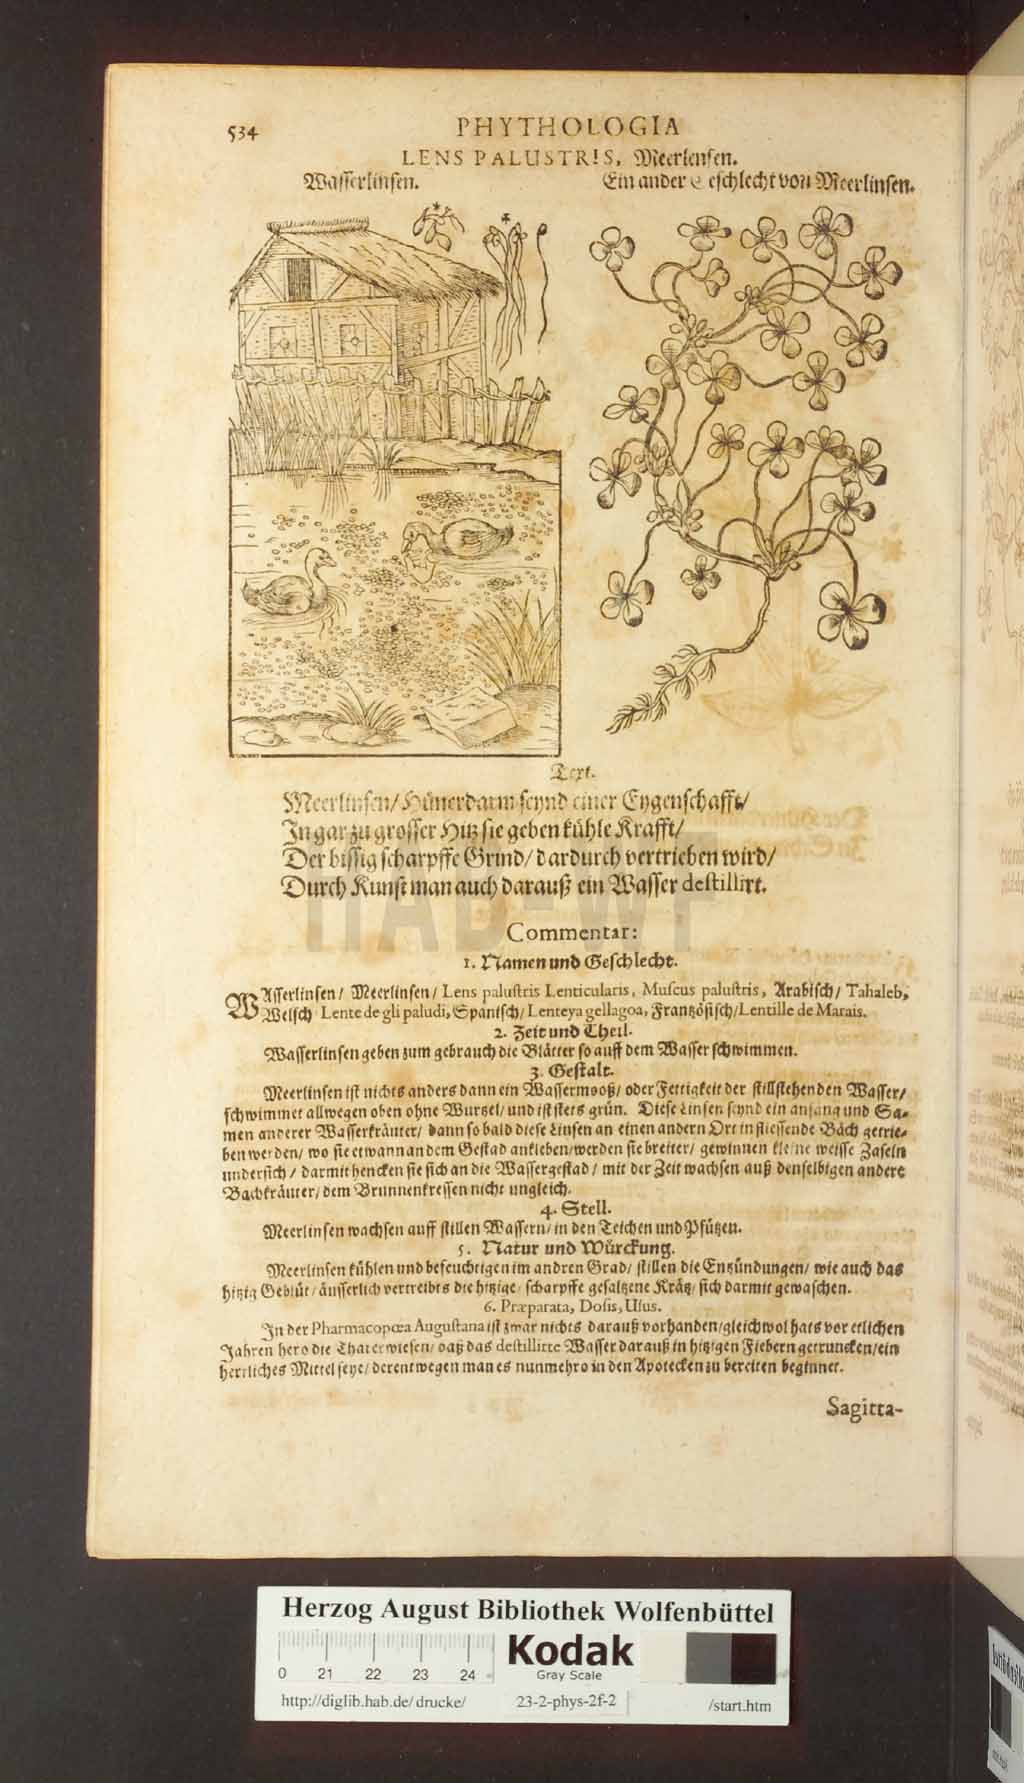 534
PHYTHOLOGIA
LENS PALUSTRIS, Meerlensen.
Wasserlinsen.
Ein ander Geschlecht von Meerlinsen.
Text.
Meerlinsen/ Hünerdarm seynd einer Eygenschafft/
In gar zu grosser Hitz sie geben kühle Krafft/
Der bissig scharpffe Grind/ dardurch vertrieben wird/
Durch Kunst man auch darauß ein Wasser destillirt.
HAB-WF
Commentar:
1. Namen und Geschlecht.
WAsserlinsen/ Meerlinsen/ Lens palustris Lenticularis, Muscus palustris, Arabisch/ Tahaleb,
Welsch Lente de gli paludi, Spanisch/ Lenteya gellagoa, Französisch/ Lentille de Marais.
2. Zeit und Theil.
Wasserlinsen geben zum gebrauch die Blätter so auff dem Wasser schwimmen.
3. Gestalt.
Meerlinsen ist nichts anders dann ein Wassermooß/ oder Fettigkeit der stillstehenden Wasser/
schwimmet allwegen oben ohne Wurtzel/ und ist stets grün. Diese Linsen seynd ein anfang und Sa-
men anderer Wasserkräuter/ dann so bald diese Linsen an einen andern Ort in fliessende Bäch getrie-
ben werden/ wo sie etwann an dem Gestad ankleben/ werden sie breiter/ gewinnen kleine weisse Zaseln
undersich/ darmit hencken sie sich an die Wassergestad/ mit der Zeit wachsen auß denselbigen andere
Bachkräuter/ dem Brunnenkressen nicht ungleich.
4. Stell.
Meerlinsen wachsen auff stillen Wassern/ in den Teichen und Pfützen.
5. Natur und Würckung.
Meerlinsen kühlen und befeuchtigen im andren Grad/ stillen die Entzündungen/ wie auch das
hitzig Geblüt/ äusserlich vertreibts die hitzige/ scharpffe gesaltzene Krätz/ sich darmit gewaschen.
6. Præparata, Dosis, Usus.
In der Pharmacopœa Augustana ist zwar nichts darauß vorhanden/ gleichwol hats vor etlichen
Jahren hero die That erwiesen/ daß das destillirte Wasser darauß in hitzigen Fiebern getruncken/ ein
herrliches Mittel seye/ derentwegen man es nunmehro in den Apotecken zu bereiten beginnet.
Sagitta-
Herzog August Bibliothek Wolfenbüttel
0 21 22 23 24
Kodak
Gray Scale
http://diglib.hab.de/drucke/ 23-2-phys-2f-2 /start.htm